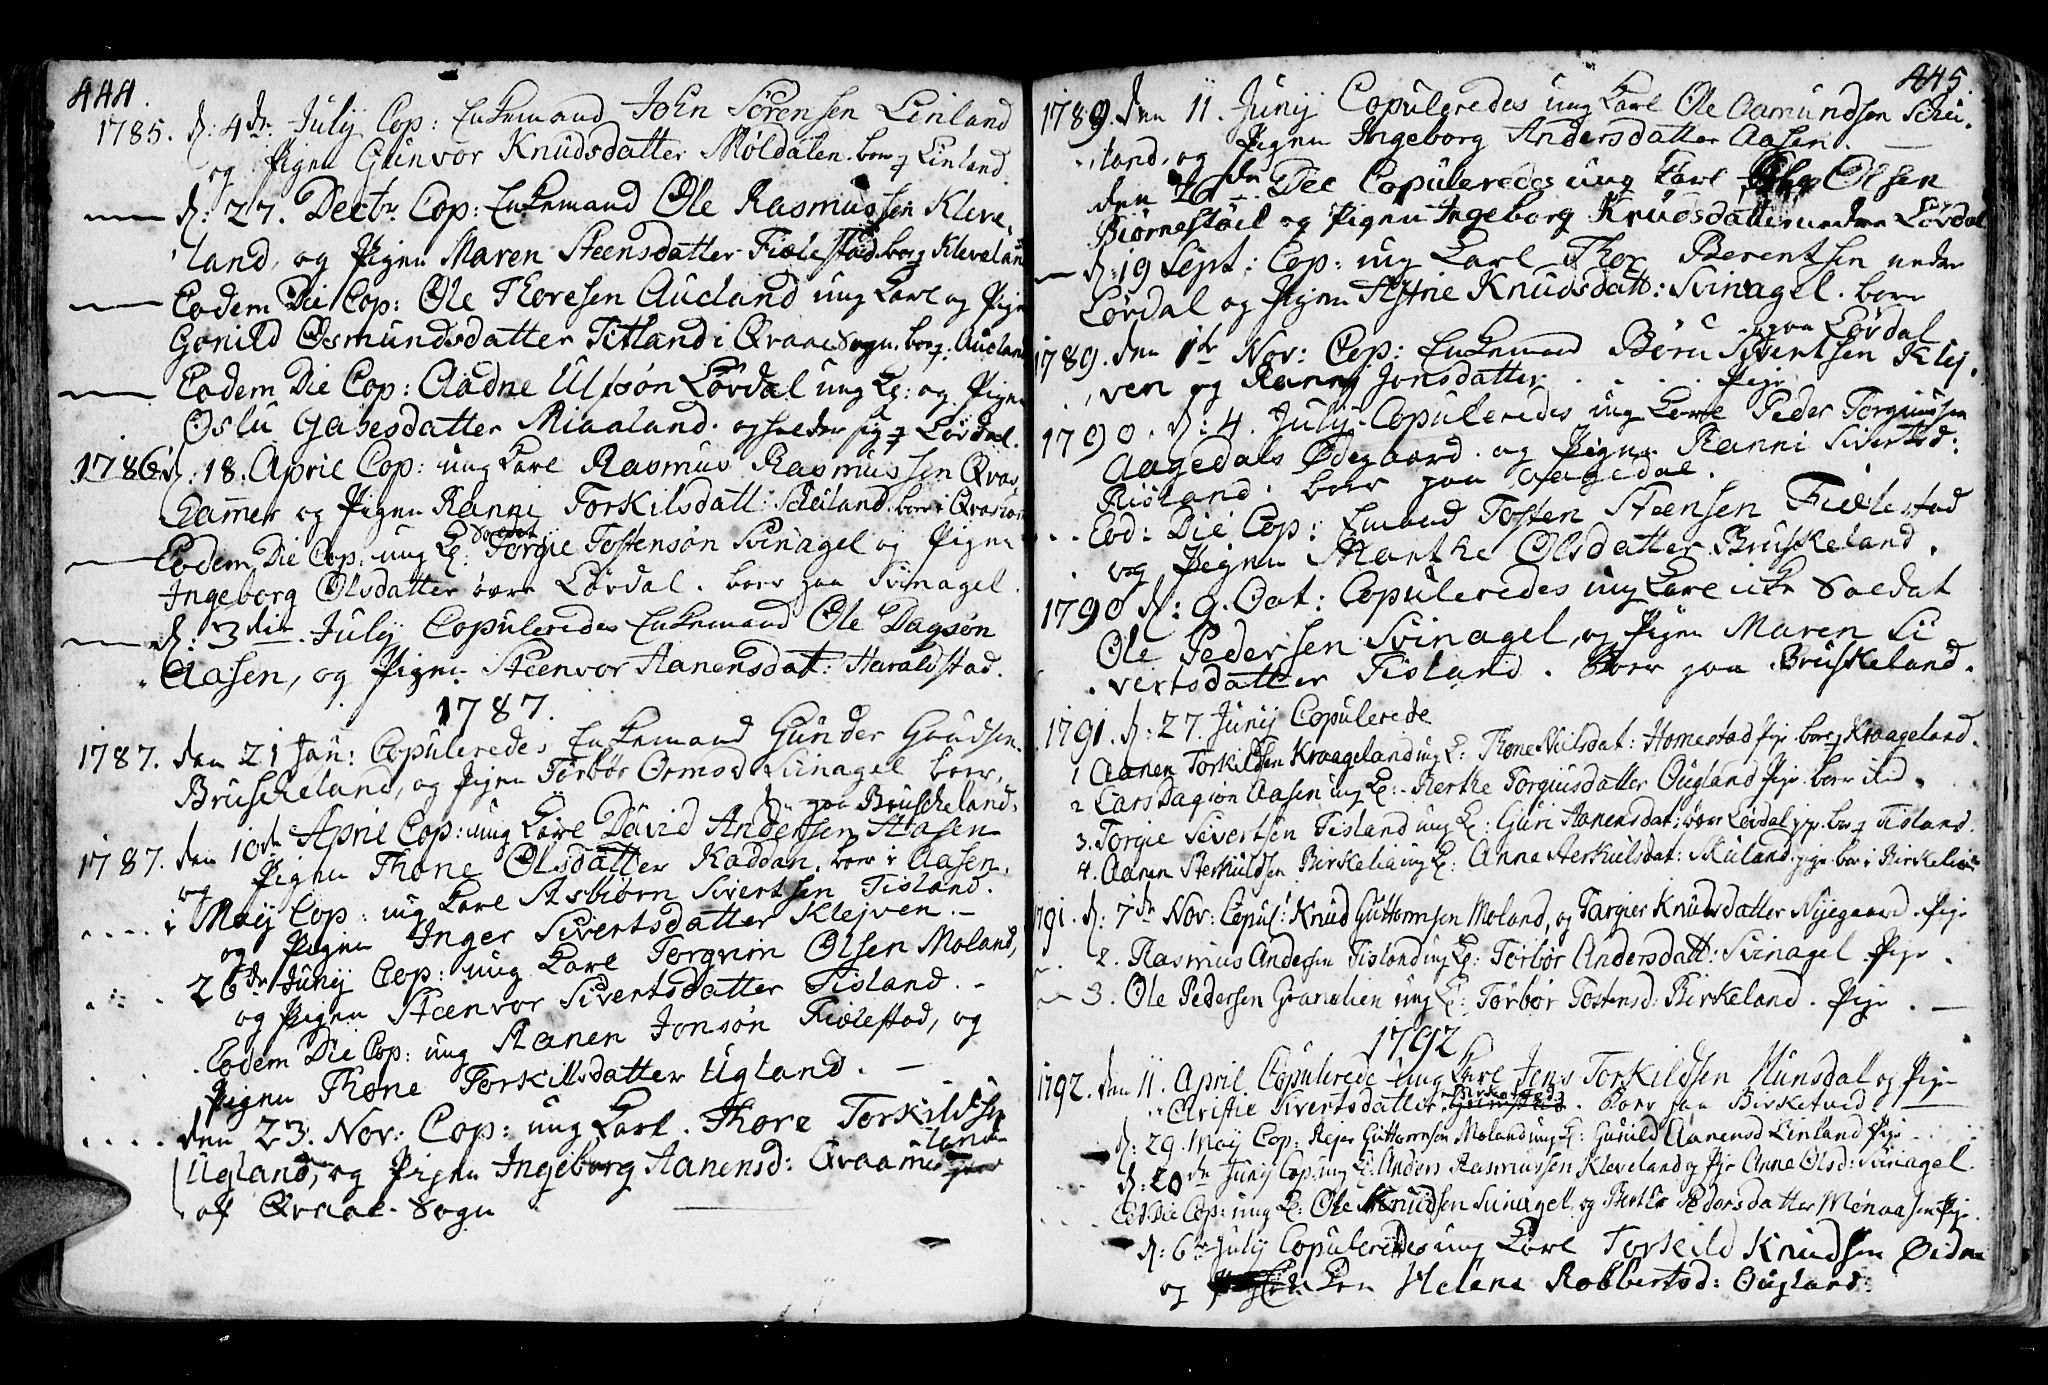 444.
1785. d: 4de July Cop: Enkemand John Sörensen Linland
og Pigen Gunvor Knudsdatter Møldalen. boer p Linland.
d: 27. Decbr Cop: Enkemand Ole Rasmussen Kleve-
land, og Pigen Maren Steensdatter Fiælestad. boer p Kleveland
Eodem Die Cop: Ole Thoresen Aucland ung Karl og Pigen
Gønild Osmundsdatter Titland i Qvaae Sogn. boer p: Aucland
Eodem Die Cop: Aadne Ulfsøn Lövdal ung K: og Pigen
Oslu Gabesdatter Miaaland. opholder sig p Lövdal.
1786. d: 18. April Cop: ung Karl Rasmus Rasmussen Qvaas
hammer og Pigen Ranni Torkilsdatt: Scheiland. boer i
Eodem Die Cop: ung K: Soldat Torgie Tostensøn Svinagel og Pigen
Ingeborg Olsdatter övre Lövdal. boer paa Svinagel.
d: 3die July Copuleredes Enkemand Ole Dagsøn
Aasen, og Pigen Steenvor Aanensdat: Haraldstad.
1787.
1787. den 21 Jan: Copuleredes Enkemand Gunder Gundsen
Bruscheland, og Pigen Törbör Ormsd. Svinagel boer
paa Bruscheland.
1787. den 10de April Cop: ung Karl David Andersen Aasen
og Pigen Thone Olsdatter Kaddan. boer i Aasen.
i May Cop: ung Karl Asbiørn Sivertsen Tisland.
og Pigen Inger Sivertsdatter Klejven.
26de Junij Cop: ung Karl Torgrim Olsen Moland,
og Pigen Steenvor Sivertsdatter Tisland.
Eodem Die Cop: ung Aanen Jonsøn Fiælestad, og
Pigen Thone Torkillsdatter Ugland.
den 23. Nov: Cop: ung Karl. Thore Torkildsen
Ugland, og Pigen Ingeborg Aanensd: Qvaame
af Qvaae Sogn
445.
1789. den 11. Junij Copuleredes ung Karl Ole Aamundsen Schei-
land. og Pigen Ingeborg Andersdatter Aasen.
den 26de Dec Copuleredes ung Karl Olsen
Biørnestøel og Pigen Ingeborg Knudsdatter nedre Lövdal
d: 19 Sept: Cop: ung Karl Thor Berentsen nedre
Lövdal og Pigen Astrie Knudsdatt: Svinagel. boer
paa Lövdal
1789. den 1te Nov: Cop: Enkemand Börn Sivertsen Klej-
ven og Ranni Jonsdatter . . . . Pige
1790. d: 4. July Copuleredes ung Karl Peder Torgiussen
Aagedals Ødegaard. og Pigen Ranni Sivertsd:
Risland. boer paa Aagedal.
Eod: Die Cop: Emand Tosten Steensen Fiælestad
og Pigen Marthe Olsdatter Bruskeland.
1790 d: 9. Oct: Copuleredes ung Karl Soldat
Ole Pedersen Svinagel, og Pigen Maren Si
vertsdatter Tisland. Boer paa Bruskeland.
1791. d: 27. Junij Copulerede
1 Aanen Torkildsen Kraageland ung K: Thone Nielsdat: Homestad Pige boer p Kraageland.
2 Lars Dagsøn Aasen ung K: Berthe Torgiusdatter Ougland Pige boer
3. Torgie Sivertsen Tisland ung K: Guri Aanensdat: övre Lövdal pp. boer p Tisland.
4. Aanen Sterkuldsen Birkelia ung K: Anne Sterkulsdat: Skuland pige boer i Birkelia
1791. d: 7de Nov: Copul: Knud Guttormsen Moland, og Targier Knudsdatter Nyegaard. Pige
2. Rasmus Andersen Tisland ung K: Törbör Andersdatt: Svinagel Pige.
3. Ole Pedersen Granelien ung K: Törbör Tostensd: Birkeland. Pige.
1792
1792. den 11. April Copulerede ung Karl Jens Torkildsen Hunsdal og Pige
Christie Sivertsdatter Birketvedt. Boer paa Birketved.
d: 29. May Cop: Rejer Guttormsen Moland ung K: Gunild Aanensd Linland Pige
d: 20de Junij Cop: ung K: Anders Rasmussen Kleveland og Pige Anne Olsd: Svinagel.
Eod Die Cop: ung K: Ole Knudsen Svinagel, og Berthe Pedersdatter Menaasen Pige.
d: 6te July Copuleredes ung Karl Torkild Knudsen Øidne
og Helene Robbertsd: Ougland: